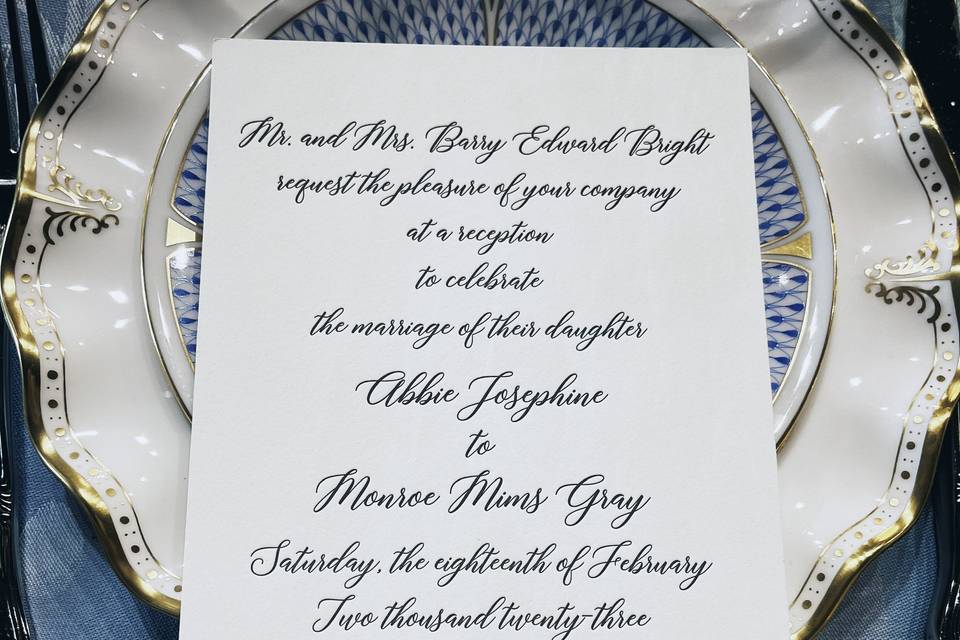 Mr. and Mrs. Barry Edward Bright
request the pleasure of your company
at a reception
to celebrate
the marriage of their daughter
Abbie Josephine
to
Monroe Mims Gray
Saturday, the eighteenth of February
Two thousand twenty-three